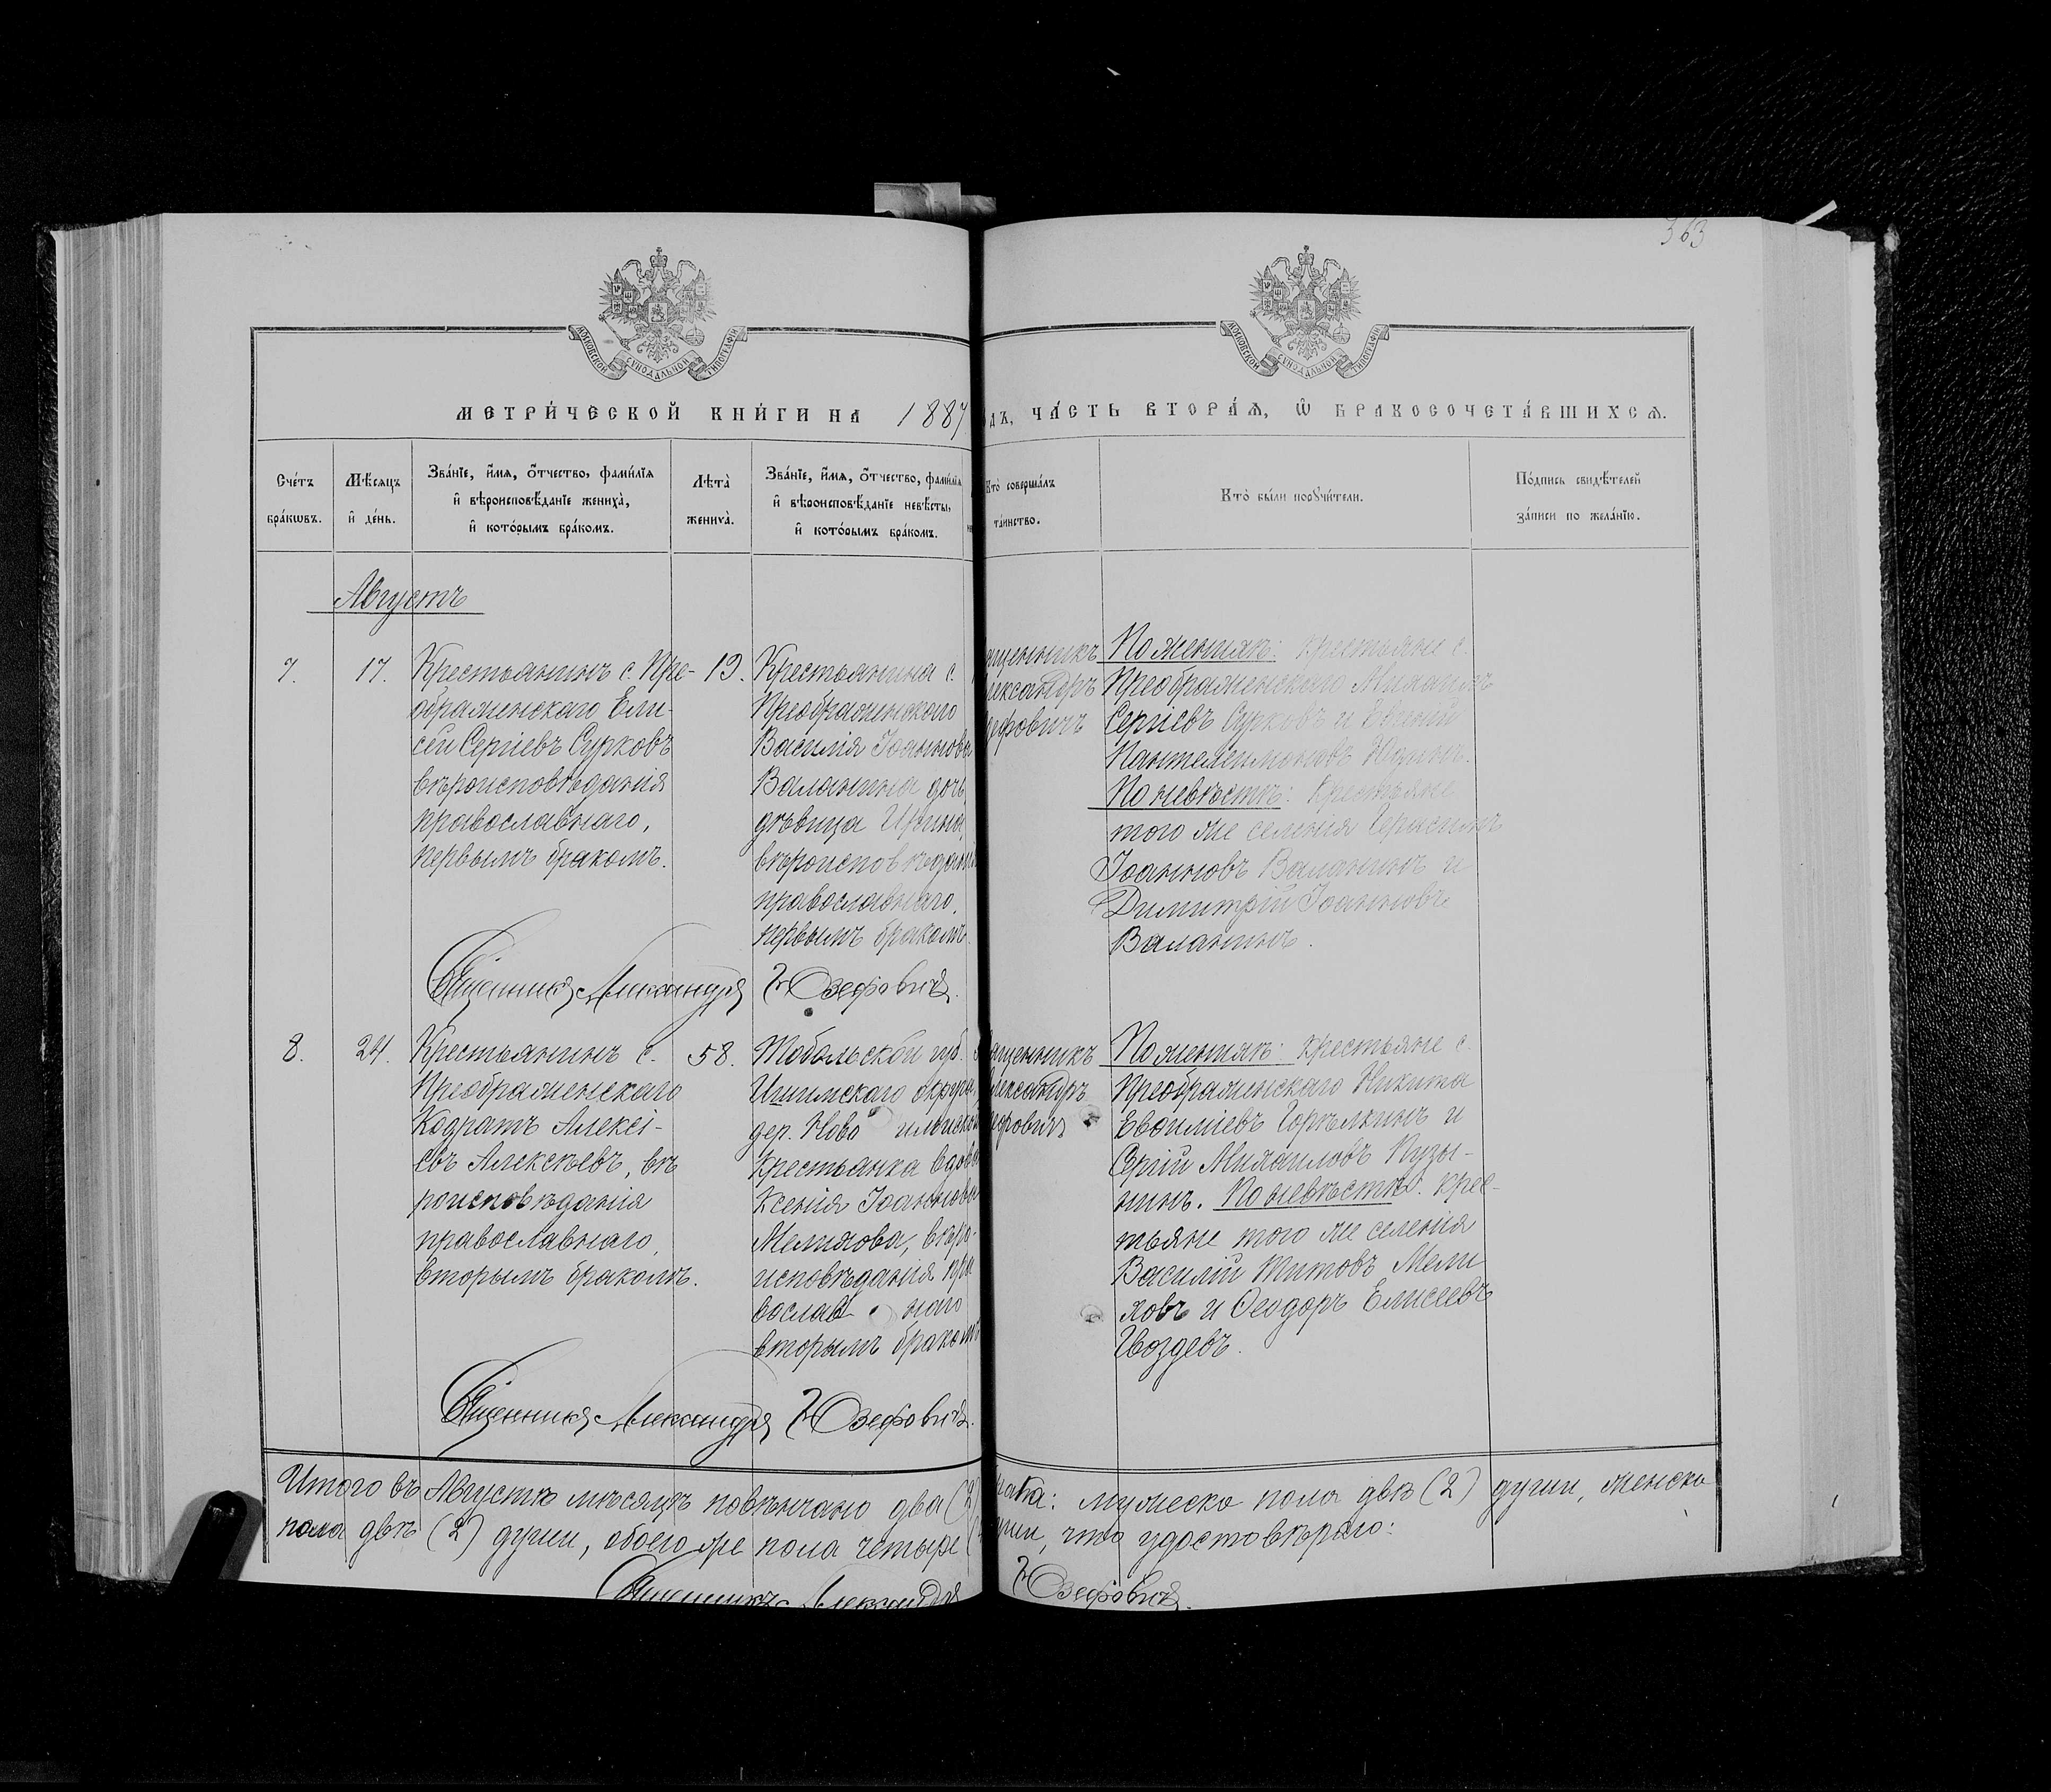 363
МОСКОВСКОЙ СУНОДАЛЬНОЙ ТИПОГРАФІИ
МОСКОВСКОЙ СУНОДАЛЬНОЙ ТИПОГРАФІИ
МЕТРИ́ЧЕСКОЙ КНИ́ГИ НА 1887
ОДЪ, ЧА́СТЬ ВТОРА́Ѧ, Ѽ БРАКОСОЧЕТА́ВШИХСѦ.
Сче́тъ бра́кѡвъ.
Мѣ́сѧцъ и҆ де́нь.
Зва́нїе, и҆́мѧ, ѻ҆́тчество, фами́лїѧ
и҆ вѣроисповѣ́данїе жениха̀,
и҆ кото́рымъ бра́комъ.
Лѣта̀ жениха̀.
Зва́нїе, и҆́мѧ, ѻ҆́тчество, фами́лїѧ
и҆ вѣроисповѣ́данїе невѣ́сты,
и҆ кото́рымъ бра́комъ.
Кто̀ соверша́лъ
та́инство.
Кто̀ бы́ли порꙋчи́тели.
По́дпись свидѣ́телей
за́писи по жела́нїю.
Августъ
7.
17.
Крестьянинъ с. Пре-
ображенскаго Ели-
сей Сергіевъ Сурковъ
вѣроисповѣданія
православнаго,
первымъ бракомъ.
19.
Крестьянина с.
Преображенского
Василія Іоаннова
Валанина дочь
дѣвица Ирина,
вѣроисповѣдані
православнаго.
первымъ бракомъ.
ященникъ
лександръ
зефовичъ
По женихѣ: крестьяне с.
Преображенскаго Михаилъ
Сергіевъ Сурковъ и
Пантелеимоновъ Юдинъ.
По невѣстѣ: крестьяне
того же селенія Герасимъ
Іоанновъ Валанинъ и
Димитрій Іоанновъ
Валанинъ.
Священникъ Александръ Юзефовичъ.
8.
24.
Крестьянинъ с.
Преображенскаго
Кодратъ Алексі-
евъ Алексѣевъ, вѣ
роисповѣданія
православнаго,
вторымъ бракомъ.
58.
Тобольской губ.
Ишимскаго округа
дер. Ново
крестьянка вдова
Ксенія Іоаннова
Мелихова, вѣро-
исповѣданія пра
вослав наго
вторымъ бракомъ
вященникъ
лександръ
зефовичъ
По женихѣ: крестьяне с.
Преображенскаго Никита
Евѳиміевъ Горѣлкинъ и
Сергій Михаиловъ Пузы-
нинъ. По невѣстѣ: крес-
тьяне того же селенія
Василій Титовъ Мели
ховъ и Ѳеодоръ Елисеевъ
Гвоздевъ.
Священникъ Александръ Юзефовичъ.
Итого въ Августѣ мѣсяцѣ повѣнчано два (2) рака: мужеска пола двѣ (2) души, женска
пола двѣ (2) души, обоего же пола четыре уши, что удостовѣряю:
Священникъ Александръ Юзефовичъ.